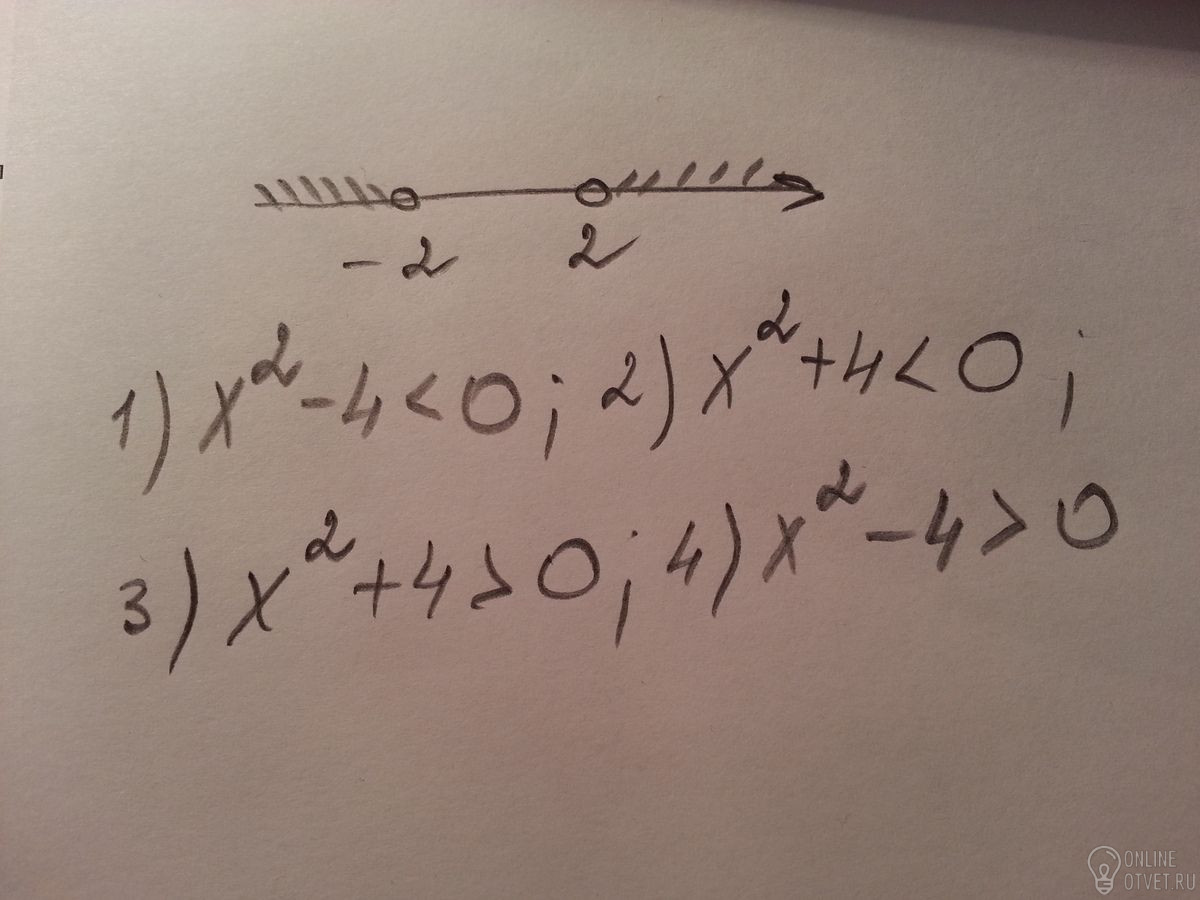 -2 2
1) x²-4<0; 2) x²+4<0;
3) x²+4>0; 4) x²-4>0
ONLINE
OTVET.RU